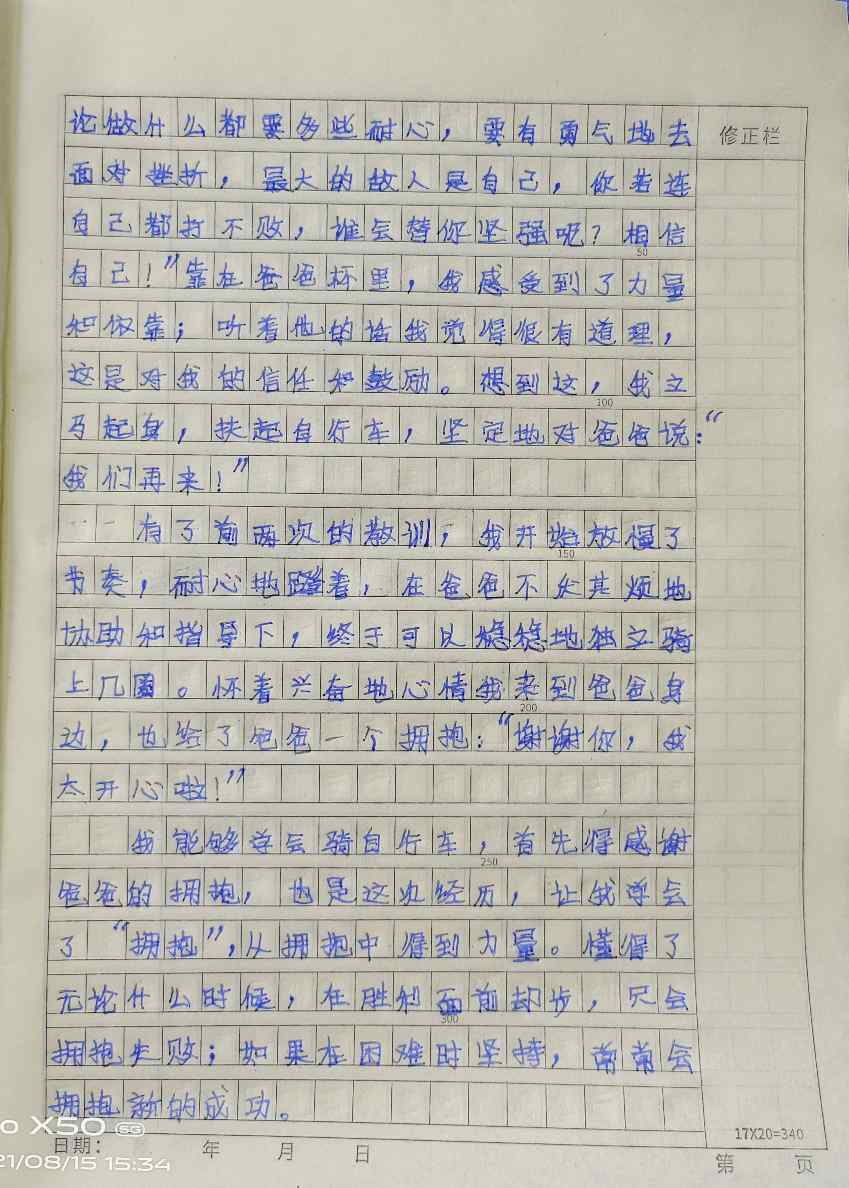 论做什么都要多些耐心，要有勇气地去
修正栏
面对挫折，最大的敌人是自己，你若连
自己都打不败，谁会替你坚强呢？相信
50
自己！”靠在爸爸怀里，我感受到了力量
和依靠；听着他的话我觉得很有道理，
这是对我的信任和鼓励。想到这，我立
100
马起身，扶起自行车，坚定地对爸爸说：“
我们再来！”
有了前两次的教训，我开始放慢了
150
节奏，耐心地蹬着，在爸爸不厌其烦地
协助和指导下，终于可以稳稳地独立骑
上几圈。怀着兴奋地心情我来到爸爸身
200
边，也给了爸爸一个拥抱：“谢谢你，我
太开心啦！”
我能够学会骑自行车，首先得感谢
250
爸爸的拥抱，也是这次经历，让我学会
了“拥抱”，从拥抱中得到力量。懂得了
无论什么时候，在胜利面前却步，只会
300
拥抱失败；如果在困难时坚持，常常会
拥抱新的成功。
17X20=340
日期： 年 月 日
第 页
X50 5G
21/08/15 15:34